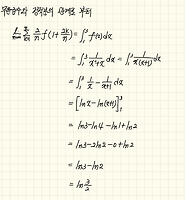 무한급수와 정적분의 관계로 부터
lim_{n→∞} Σ_{k=1}^{n} 2/n f(1+2k/n) = ∫_1^3 f(x)dx
= ∫_1^3 1/(x²+x) dx = ∫_1^3 1/(x(x+1)) dx
= ∫_1^3 1/x - 1/(x+1) dx
= [ln x - ln(x+1)]_1^3
= ln3 - ln4 - ln1 + ln2
= ln3 - 2ln2 - 0 + ln2
= ln3 - ln2
= ln 3/2